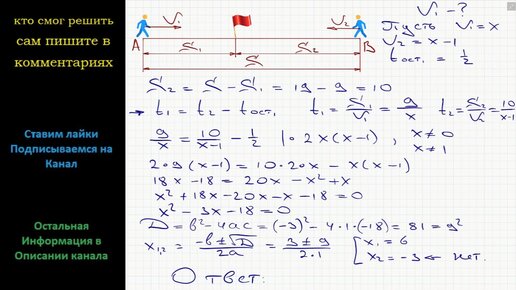 кто смог решить
сам пишите в
комментариях
Ставим лайки
Подписываемся на
Канал
Остальная
Информация в
Описании канала
V₁ V₂
A B
S₁ S₂
S
V₁ - ?
Пусть V₁ = x
V₂ = x - 1
t ост₁ = 1/2
S₂ = S - S₁ = 19 - 9 = 10
→ t₁ = t₂ - t ост₁ t₁ = S₁/V₁ = 9/x t₂ = S₂/V₂ = 10/(x-1)
9/x = 10/(x-1) - 1/2 |·2x(x-1), x ≠ 0
x ≠ 1
2·9(x-1) = 10·2x - x(x-1)
18x - 18 = 20x - x² + x
x² + 18x - 20x - x - 18 = 0
x² - 3x - 18 = 0
D = b² - 4ac = (-3)² - 4·1·(-18) = 81 = 9²
x₁,₂ = (-b ± √D)/2a = (3 ± 9)/(2·1) [ x₁ = 6
x₂ = -3 ← нет.
Ответ: